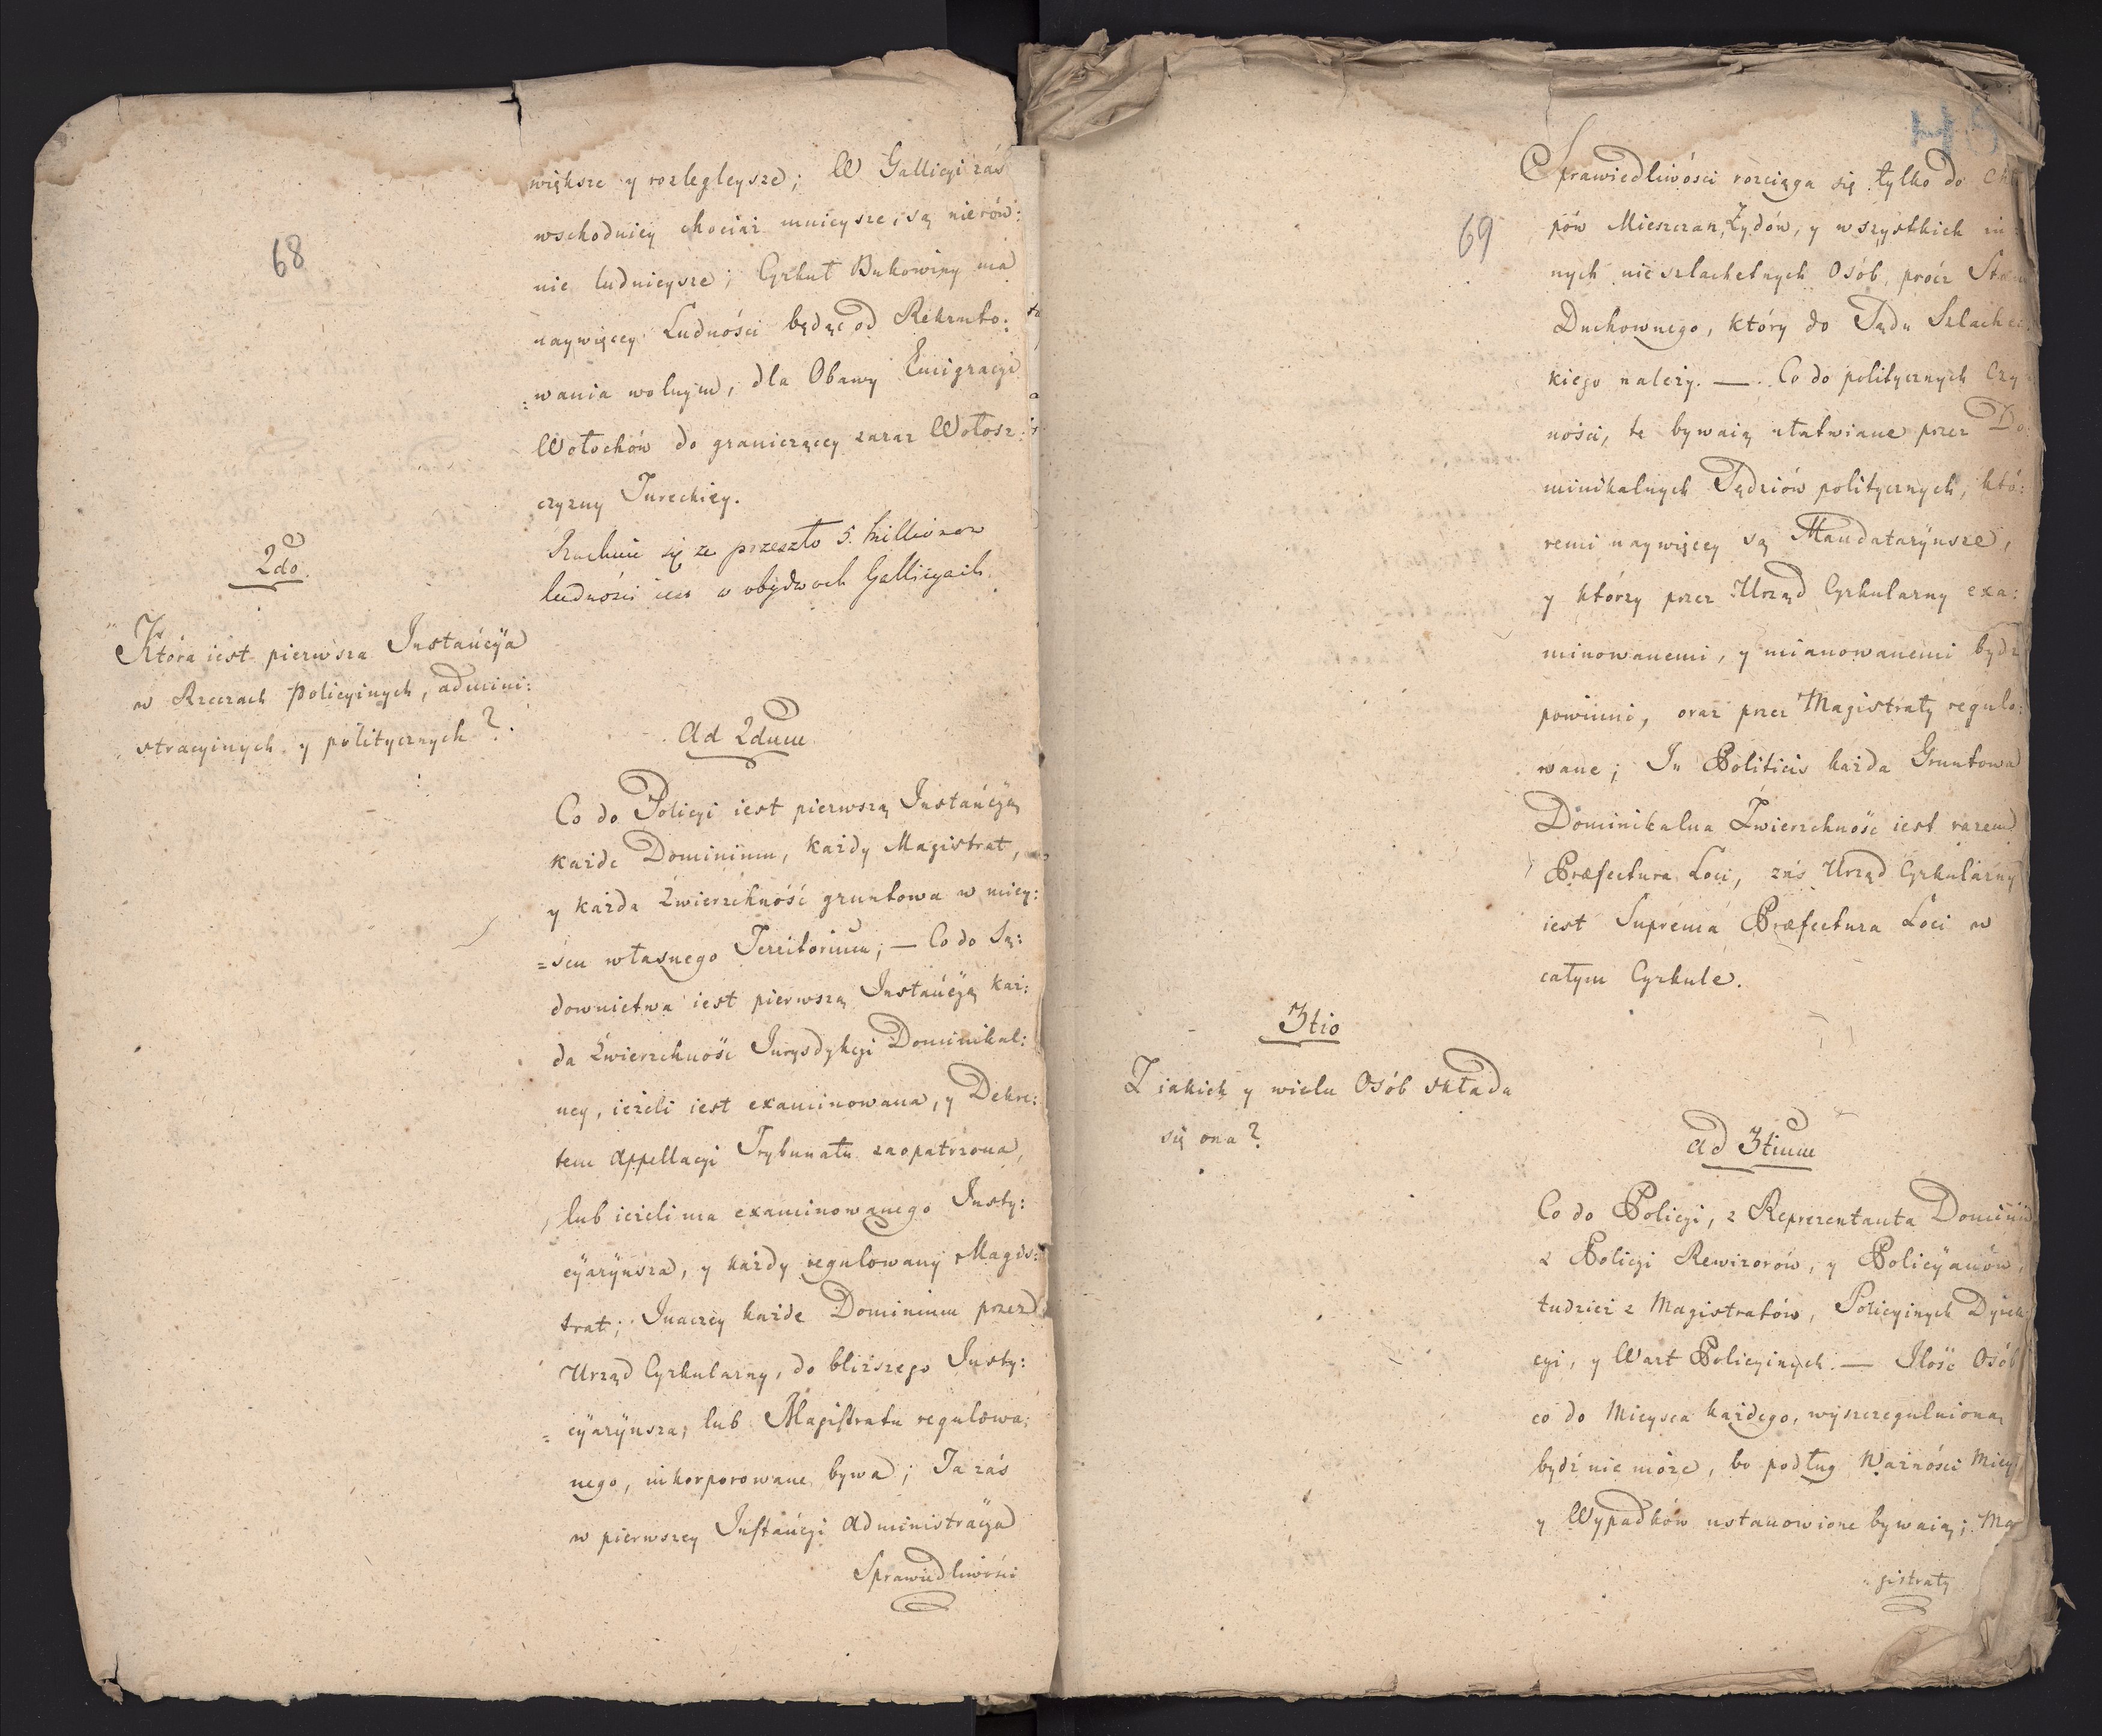 68
większe y rozlegleysze; W Gallicyi zaś
wschodniey chociaż mnieysze, są nierów:
nie ludnieysze; Cyrkuł Bukowiny ma
naywięcey Ludności będąc od Rekruto:
=wania wolnym, dla Obawy Emigracyi
Wołochów do graniczącey zaraz Wołosz:
czyzny Tureckiey.
Rachuie się ze przeszło 5. Millionow
ludności iest w obydwoch Gallicyach.
2do.
Która iest pierwsza Instańcÿa
w Rzeczach policyinych, admini:
stracyinych y politycznych?
Ad 2dum
Co do Policyi iest pierwszą Instańcÿą
każde Dominium, każdy Magistrat,
y każda Zwierzchność gruntowa w miey:
=scu własnego Territorium; — Co do Są:
downictwa iest pierwszą Instańcÿą każ:
da Zwierzchność Jurysdykcyi Dominikal:
ney, ieżeli iest examinowana, y Dekre:
tem Appellacyi Trybunału zaopatrzona,
lub ieżeli ma examinowanego Justy:
cÿarÿusza, y każdy regulowany Magis:
trat; Inaczey każde Dominium przez
Urząd Cyrkularny, do bliższego Justy:
=cÿarÿusza, lub Magistratu regulowa:
nego, inkorporowane bywa; Ta zaś
w pierwszey Instańcyi Administracÿa
Sprawiedliwości
69
Sprawiedliwości rozciąga się tylko do Chł
pów Mieszczan, Żydów, y wszystkich in:
nych nie szlachetnych Osób, prócz Stanu
Duchownego, który do Sądu Szlachec:
kiego należy. — Co do politycznych Czy
ności, te bywaią ułatwiane przez Do:
minikalnych Sędziów politycznych, któ:
remi naywięcey są Mandatarÿusze,
y którzy przez Urząd Cyrkularny exa:
minowanemi, y mianowanemi bydź
powinni, oraz przez Magistraty regulo:
wane; In Politicis każda Gruntowa
Dominikalna Zwierzchność iest razem
Præfectura Loci, zaś Urząd Cyrkularny
iest Suprema Præfectura Loci w
całym Cyrkule.
3tio
Z iakich y wielu Osób składa
się ona?
ad 3tium
Co do Policyi, z Reprezentanta Dominii
z Policyi Rewizorów, y Policÿanów,
tudzież z Magistratów, Policyinych Dyrek
cyi, y Wart Policyinych. — Ilość Osób
co do Mieysca każdego, wyszczegulniona
bydź nie może, bo podług Ważności Mieysc
y Wypadków ustanowione bywaią; Ma
gistraty